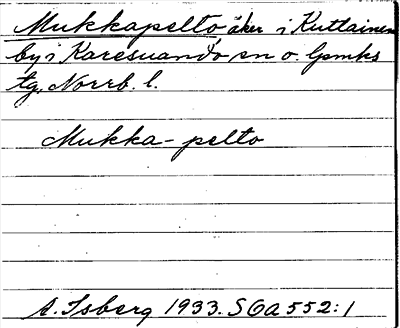 Mukkapelto, åker i Kuttainen
by i Karesuando sn o. lpmks
tg. Norrb. l.
Mukka-pelto
A. Isberg 1933. SOA 552:1